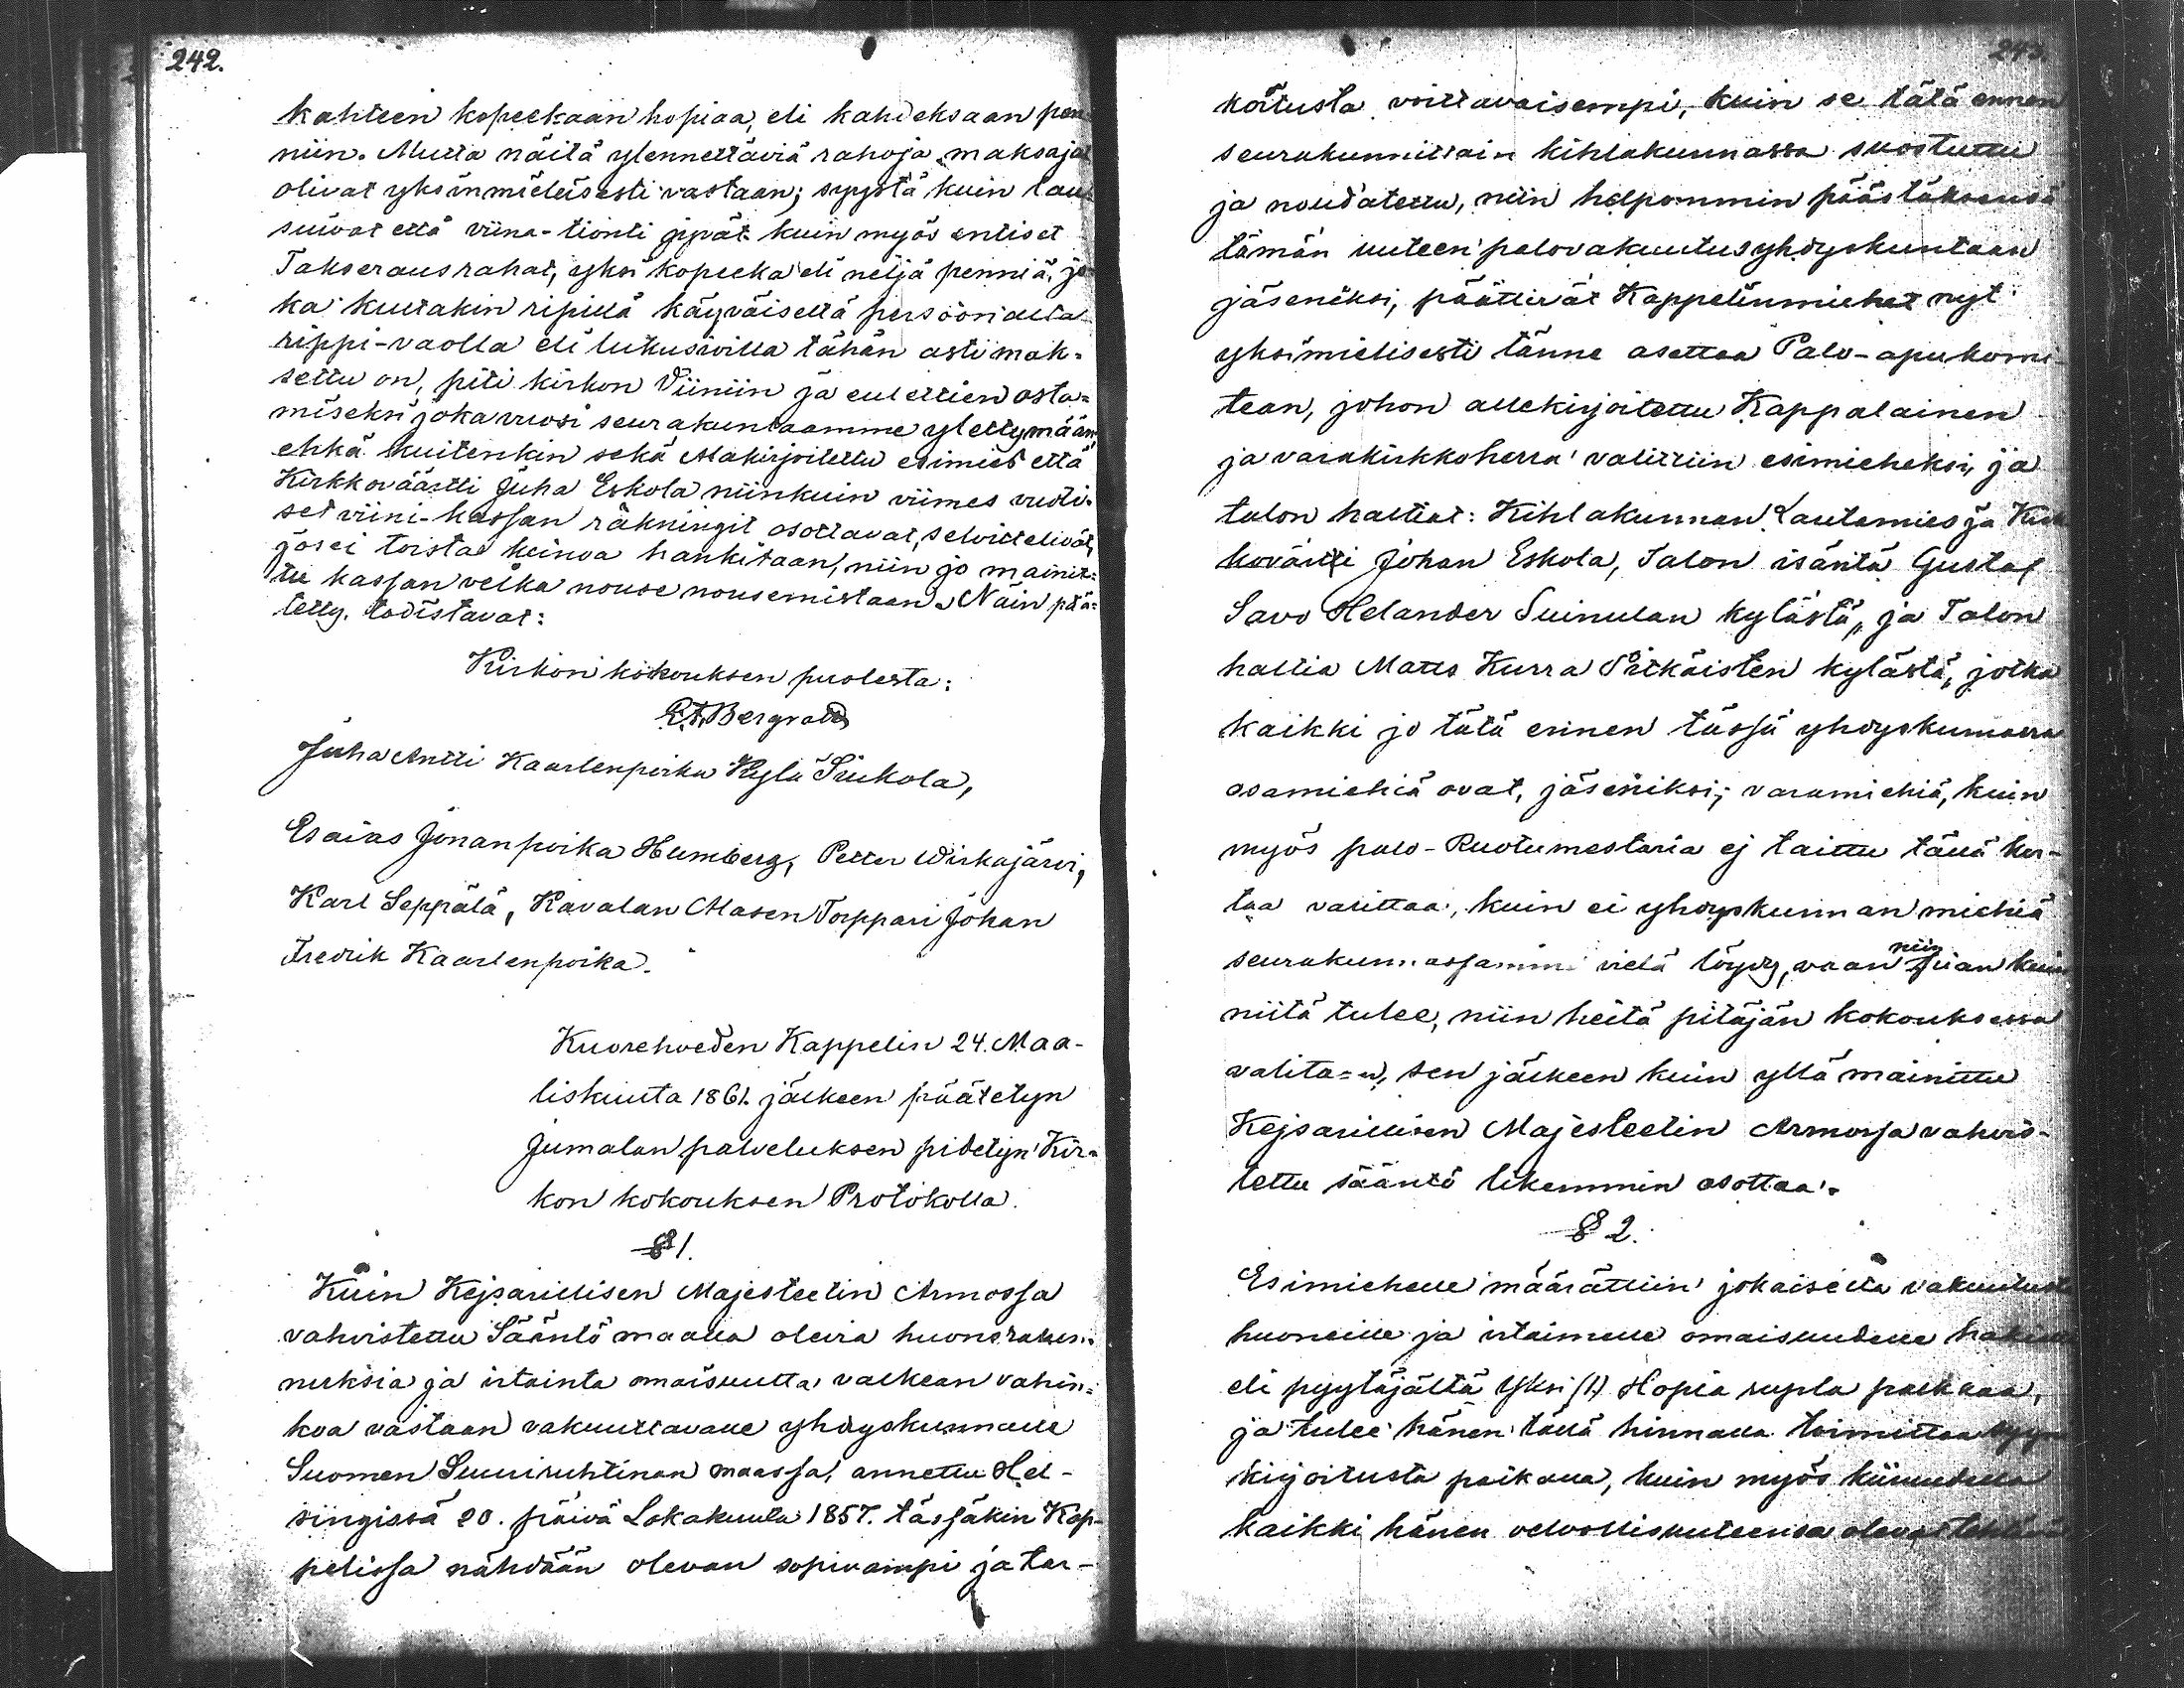 242.
kahteen kopeekaan hopiaa, eli kahdeksaan pen
niin. Mutta näitä ylennettäviä rahoja maksajat
olivat yksinmielisesti vastaan; syystä kuin lau
suivat että viina-tionti jyvät kuin myös entiset
Takserausrahat, yksi kopeeka eli neljä penniä, jo
ka kultakin ripillä käyväiseltä persoonalta
rippi-vaolla eli lukusivilla tähän asti mak=
settu on, piti kirkon Viiniin ja eulettien osta=
miseksi joka vuosi seurakuntaamme ylettymään,
ehkä kuitenkin sekä Alakirjoitettu esimies että
Kirkkoväärtti Juha Eskola niinkuin viimes vuoti=
set viini-kassan räkningit osottavat, selvittelivät,
jos ei toista keinoa hankitaan, niin jo mainit=
tu kassan velka nouse nousemistaan. Näin pää=
tetty. todistavat:
Kirkon kokouksen puolesta:
Juha Antti Kaarlenpoika Kylä Siukola,
Esaias Jonanpoika Humberg, Petter Wirkajärvi,
Karl Seppälä, Kavalan Masen Torppari Johan
Fredrik Kaarlenpoika.
Kuorehveden Kappelin 24. Maa-
liskuuta 1861. jälkeen päätetyn
Jumalan palveluksen pidetyn Kir=
kon kokouksen Protokolla.
§ 1.
Kuin Kejsarillisen Majesteetin Armossa
vahvistettu Sääntö maalla olevia huoneraken=
nuksia ja irtainta omaisuutta valkean vahin=
koa vastaan vakuuttavalle yhdyskunnalle
Suomen Suuriruhtinan maassa, annettu Hel-
singissä 20. päivä Lokakuuta 1857. tässäkin Kap-
pelissa nähdään olevan sopivampi ja tar-
243.
koitusta voittavaisempi, kuin se tätä ennen
seurakunnittain kihlakunnassa suostuttu
ja noudatettu, niin helpommin päästäksensä
tämän uuteen palovakuutusyhdyskuntaan
jäseniksi, päättivät Kappelinmiehet nyt
yksimielisesti tänne asettaa Palo-apu komi-
tean, johon allekirjoitettu Kappalainen
ja varakirkkoherra valittiin esimieheksi, ja
talon haltiat: Kihlakunnan Lautamies ja Kirk
kovärtti Johan Eskola, Talon isäntä Gustaf
Savo Helander Suinulan kylästä, ja Talon
haltia Matts Kurra Pitkäisten kylästä, jotka
kaikki jo tätä ennen tässä yhdyskunnassa
osamiehiä ovat, jäseniksi; varamiehiä, kuin
myös palo-Ruotumestaria ej taittu tällä ker-
taa valittaa, kuin ei yhdyskunnan miehiä
seurakunnassamme vielä löydy, vaan niin pian kuin
niitä tulee, niin heitä pitäjän kokouksessa
valita=n, sen jälkeen kuin yllä mainittu
Kejsarillisen Majesteetin Armossa vahvis-
tettu sääntö likemmin osottaa.
§ 2.
Esimiehelle määrättiin jokaiselta vakuutusta
huoneille ja irtaimelle omaisuudelle
eli pyytäjältä Yksi (1) Hopia rupla palkkaa,
ja tulee hänen tällä hinnalla toimittaa
kirjoitusta paikalla, kuin myös
kaikki hänen velvollisuuteensa olevat